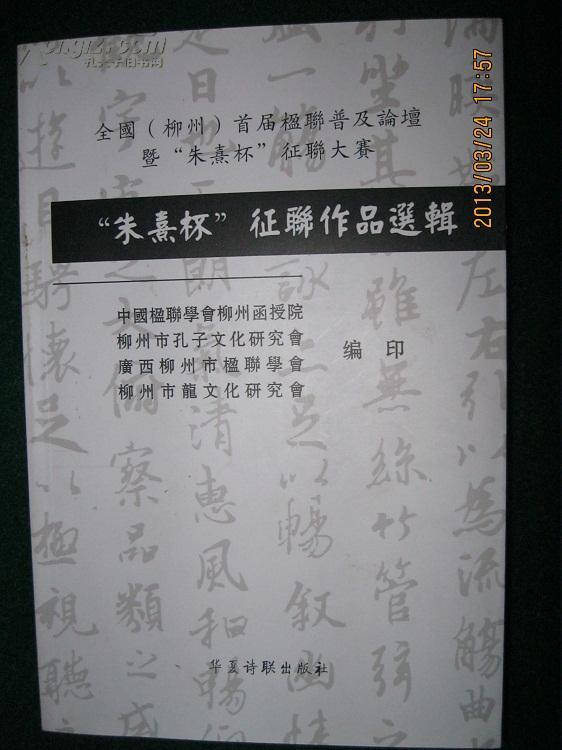 孔夫子旧书网
2013/03/24 17:57
全國（柳州）首届楹聯普及論壇
暨“朱熹杯”征聯大賽
“朱熹杯”征聯作品選輯
中國楹聯學會柳州函授院
柳州市孔子文化研究會
廣西柳州市楹聯學會
柳州市龍文化研究會
编印
华夏诗联出版社